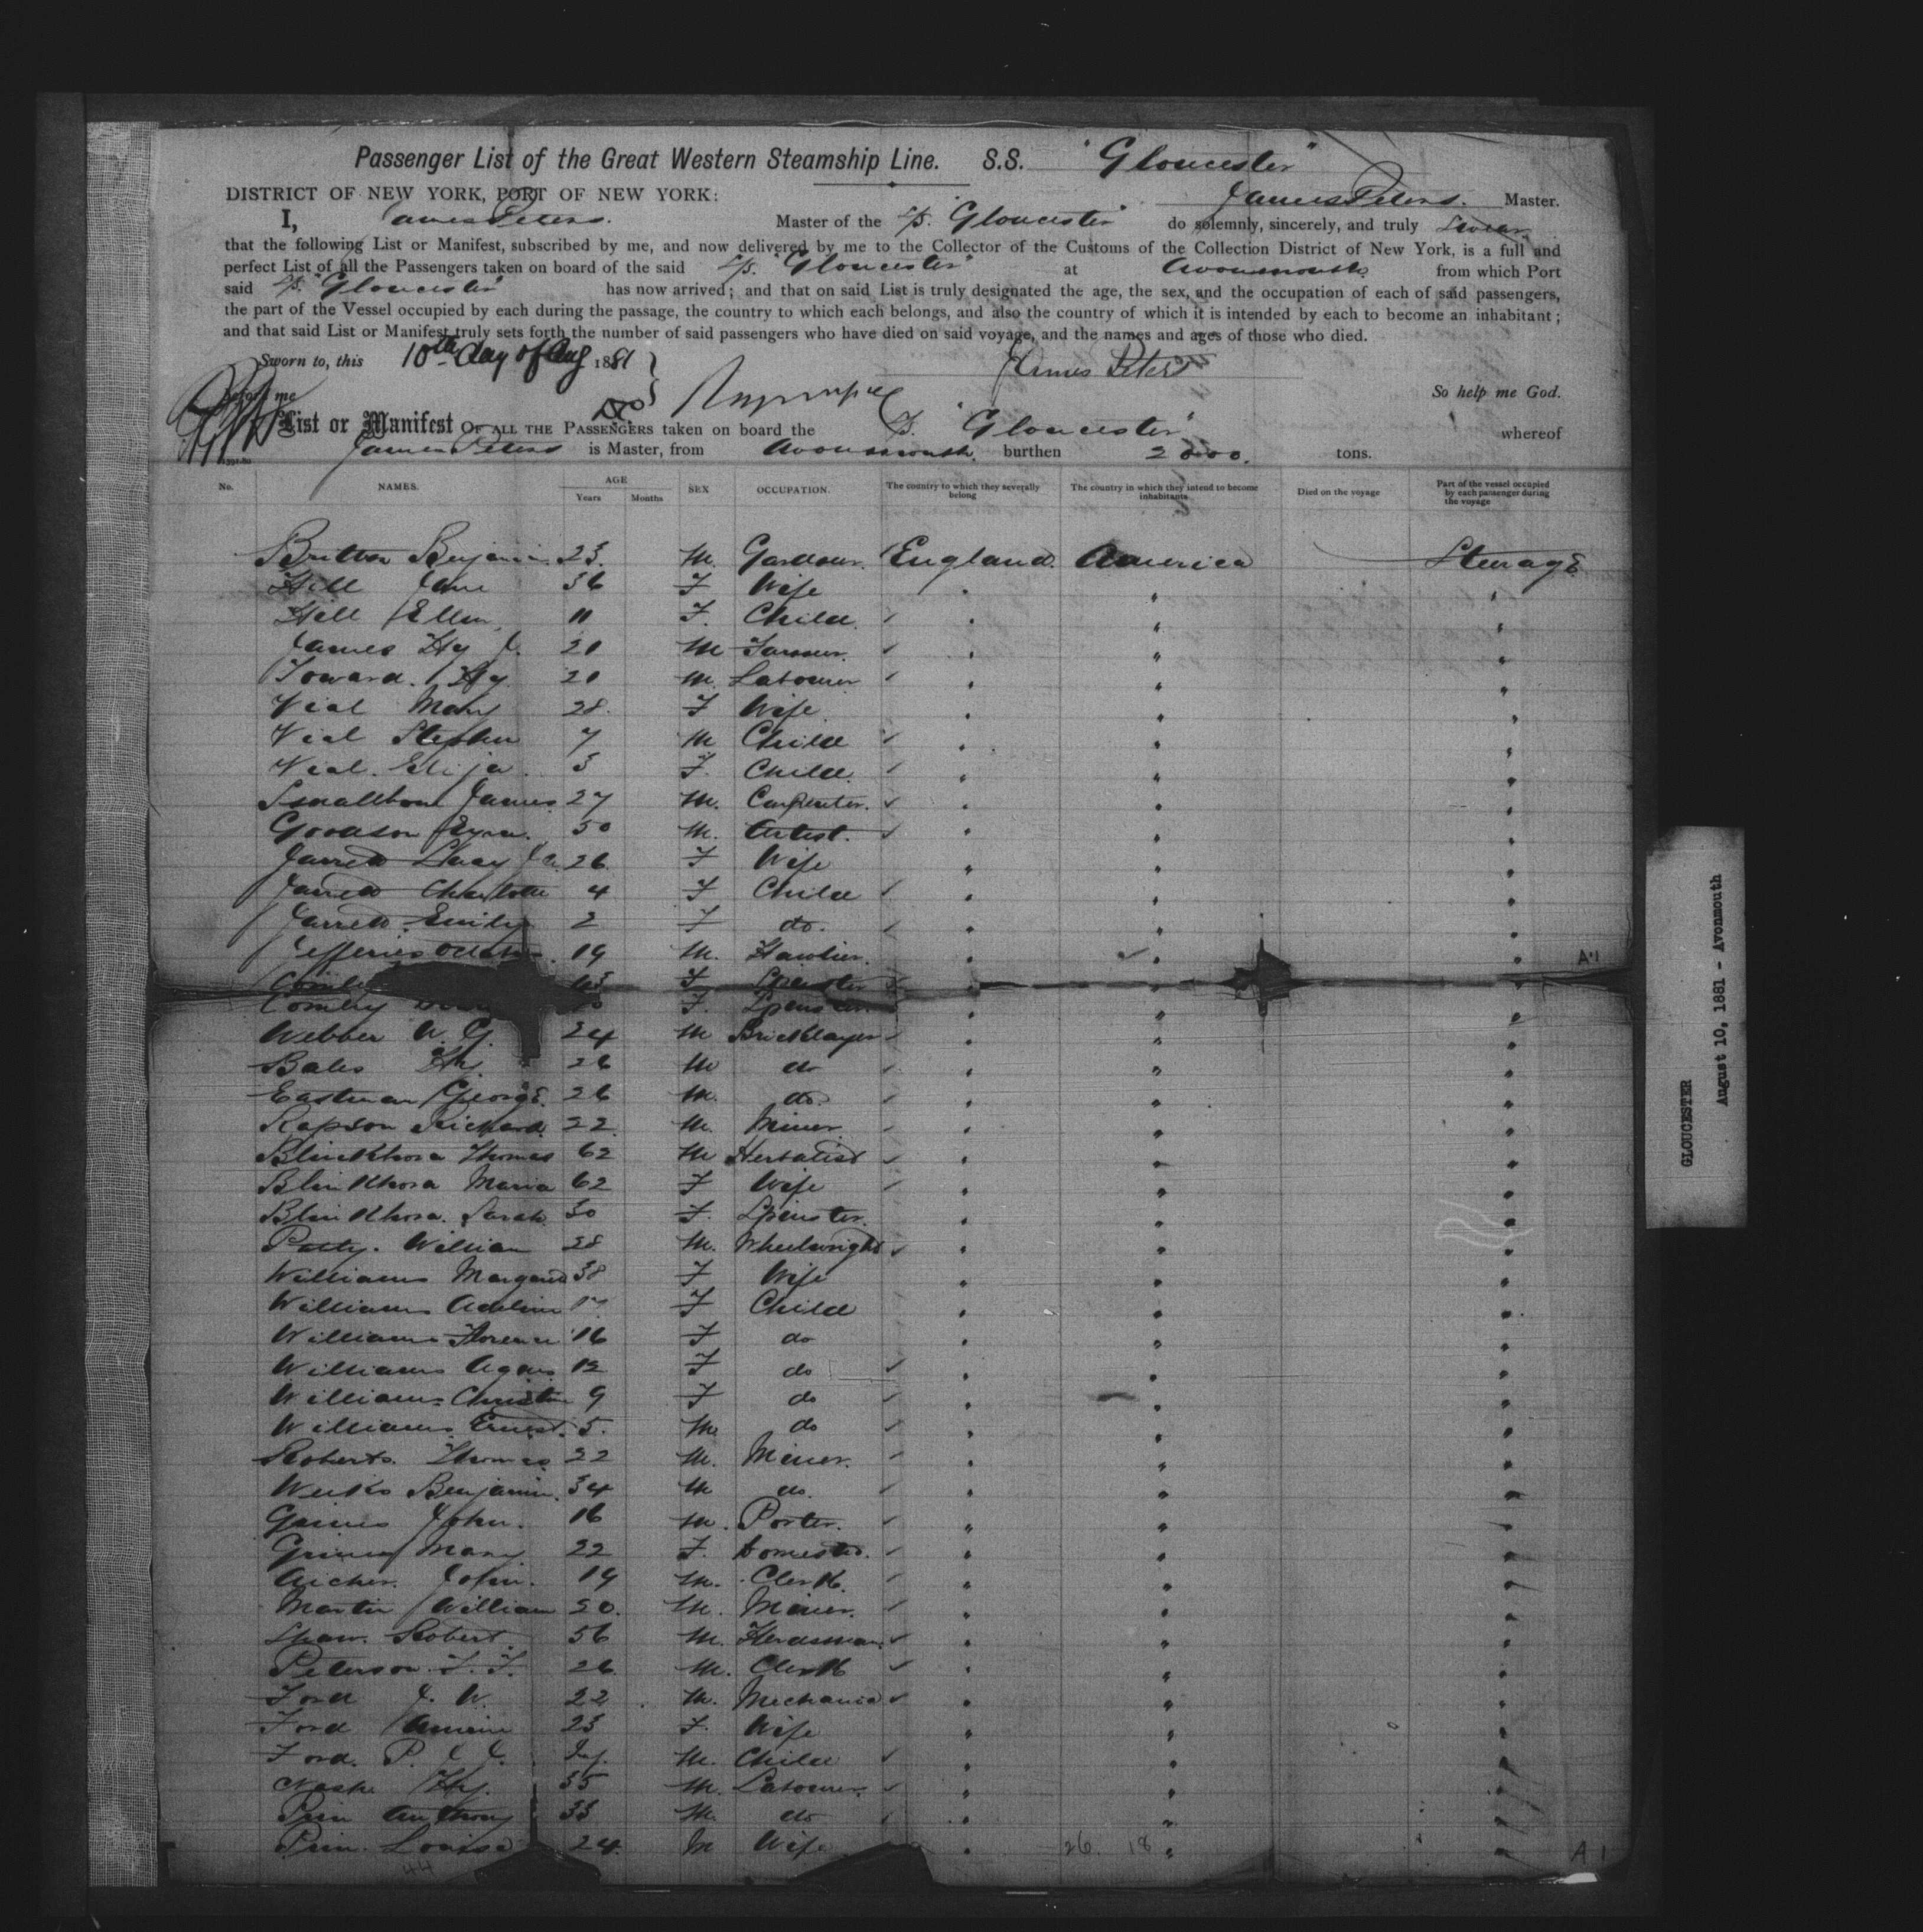 Passenger List of the Great Western Steamship Line. S.S. "Gloucester"
DISTRICT OF NEW YORK, PORT OF NEW YORK: James Peters. Master.
I, James Peters. Master of the S/S. "Gloucester" do solemnly, sincerely, and truly Swear
that the following List or Manifest, subscribed by me, and now delivered by me to the Collector of the Customs of the Collection District of New York, is a full and
perfect List of all the Passengers taken on board of the said S/S. "Gloucester" at Avonmouth from which Port
said S/S. "Gloucester" has now arrived; and that on said List is truly designated the age, the sex, and the occupation of each of said passengers,
the part of the Vessel occupied by each during the passage, the country to which each belongs, and also the country of which it is intended by each to become an inhabitant;
and that said List or Manifest truly sets forth the number of said passengers who have died on said voyage, and the names and ages of those who died.
Sworn to, this 10th day of Aug 1881 James Peters
Before me So help me God.
List or Manifest OF ALL THE PASSENGERS taken on board the S. "Gloucester" whereof
James Peters is Master, from Avonmouth. burthen tons.
No. NAMES. AGE Years Months SEX OCCUPATION. The country to which they severally belong The country in which they intend to become inhabitants Died on the voyage Part of the vessel occupied by each passenger during the voyage
Britton Benjamin 23. M. England. America Steerage
Hill Jane 36 F Wife " " "
Hill Ellen 11 F. Child ✓ " " "
James Hy J. 20 M Farmer. ✓ " " "
Toward. Hy 20 M. Labourer ✓ " " "
Vial Mary 28. F Wife " " "
Vial Stephen 7 M Child ✓ " " "
Vial. Eliza 3 F. Child. ✓ " " "
Smallbone James 27 M. Carpenter. ✓ " " "
Goodson 50 M. Artist. ✓ " " "
Jarrett Lucy 26. F Wife " " "
Jarrett Charlotte 4 F Child ✓ " " "
Jarrett. Emily 2 F do. ✓ " " "
Jefferies 19 M. Hawker. ✓ " " " A1
F Spinster ✓ " " "
Comley F. Spinster " " "
Webber W. G. 24 M Bricklayer ✓ " " "
Bales Hy. 26 M do ✓ " " "
Eastman George. 26 M. do. ✓ " " "
Rapson Richard. 22 M. Miner ✓ " " "
Blinkhorn Thomas 62 M Herbalist ✓ " " "
Blinkhorn Maria 62 F Wife ✓ " " "
Blinkhorn. Sarah 30 F. Spinster. " " "
Patty. William 28 M. Wheelwright ✓ " " "
Williams Margaret 38 F Wife " " "
Williams Adeline 17 F Child " " "
Williams Florence 16 F do " " "
Williams Agnes 12 F do ✓ " " "
Williams Christine 9 F do ✓ " " "
Williams Ernest. 5. M. do ✓ " " "
Roberts. Thomas 22 M. Miner. ✓ " " "
Weeks Benjamin. 34 M do. ✓ " " "
John. 16 M. Porter. ✓ " " "
Mary 22 F. Domestic. ✓ " " "
Aicher. John. 19 M. Clerk. ✓ " " "
Martin William 20. M. Miner. ✓ " " "
Robert. 56 M. Herdsman ✓ " " "
Peterson. F. F. 26. M. Clerk ✓ " " "
Ford J. W. 22 M. Mechanic ✓ " " "
Ford Annie 23 F. Wife " " "
Ford. P. J. J. Inf. M. Child ✓ " " "
Nash Hy. 35 M. Labourer. ✓ " " "
Prin Anthony 33 M. do " " "
Prin. Louisa 24. M Wife " 26. 18 " " A1
44
GLOUCESTER
August 10, 1881 - Avonmouth